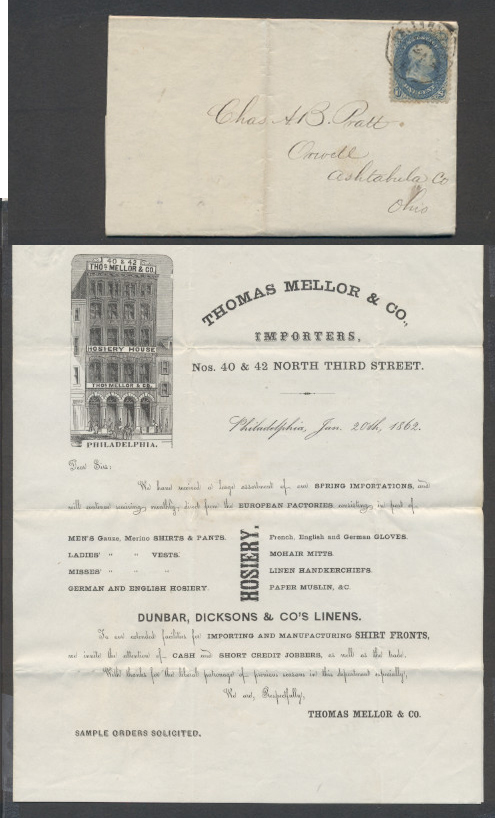 Chas A. B. Pratt.
Orwell
Ashtabula Co
Ohio
40 & 42
THOS. MELLOR & CO.
HOSIERY HOUSE
THOS. MELLOR & CO.
PHILADELPHIA.
THOMAS MELLOR & CO.,
IMPORTERS,
Nos. 40 & 42 NORTH THIRD STREET.
Philadelphia, Jan. 20th, 1862.
Dear Sirs:
We have received a large assortment of our SPRING IMPORTATIONS, and
will continue receiving, monthly, direct from the EUROPEAN FACTORIES consisting, in part of
MEN'S Gauze, Merino SHIRTS & PANTS.
LADIES' " " VESTS.
MISSES' " " "
GERMAN AND ENGLISH HOSIERY.
HOSIERY,
French, English and German GLOVES.
MOHAIR MITTS.
LINEN HANDKERCHIEFS.
PAPER MUSLIN, &C.
DUNBAR, DICKSONS & CO'S LINENS.
To our extended facilities for IMPORTING AND MANUFACTURING SHIRT FRONTS,
we invite the attention of CASH and SHORT CREDIT JOBBERS, as well as the trade.
With thanks for the liberal patronage of previous seasons in this department especially,
We are, Respectfully,
THOMAS MELLOR & CO.
SAMPLE ORDERS SOLICITED.